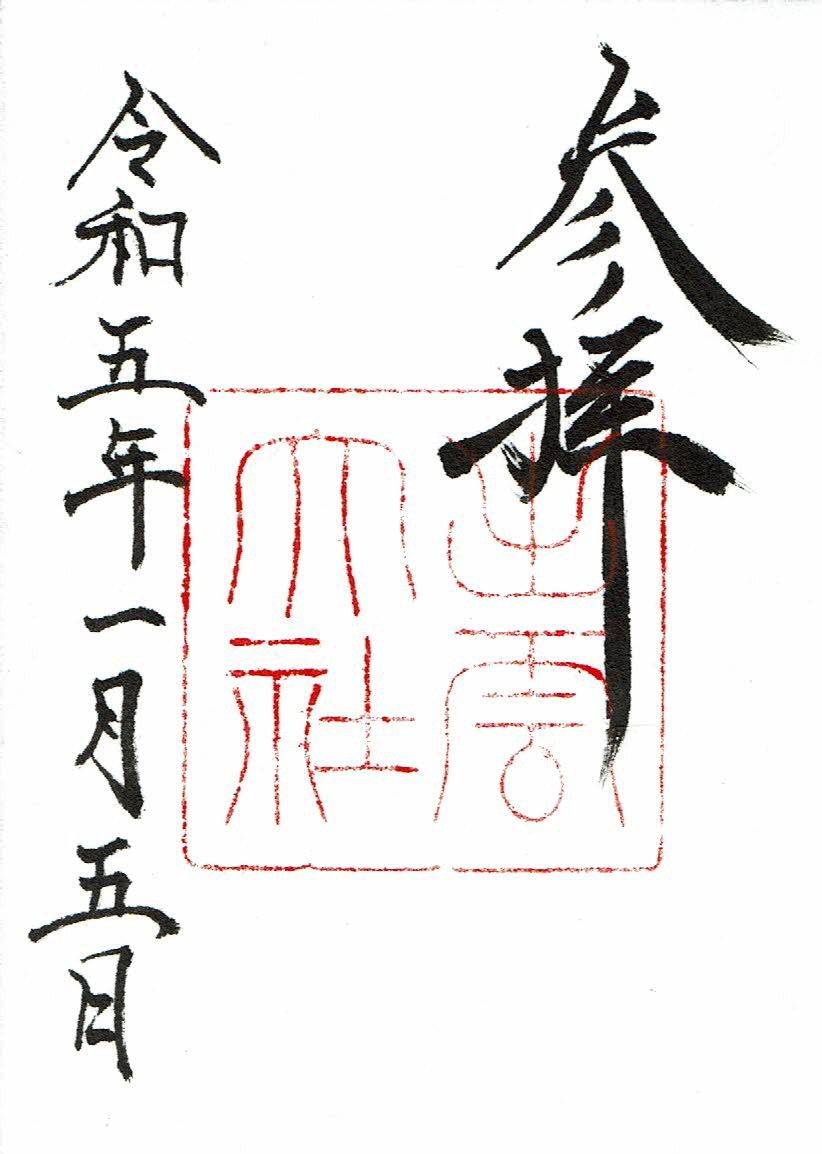 参拝
出雲
大社
令和五年一月五日